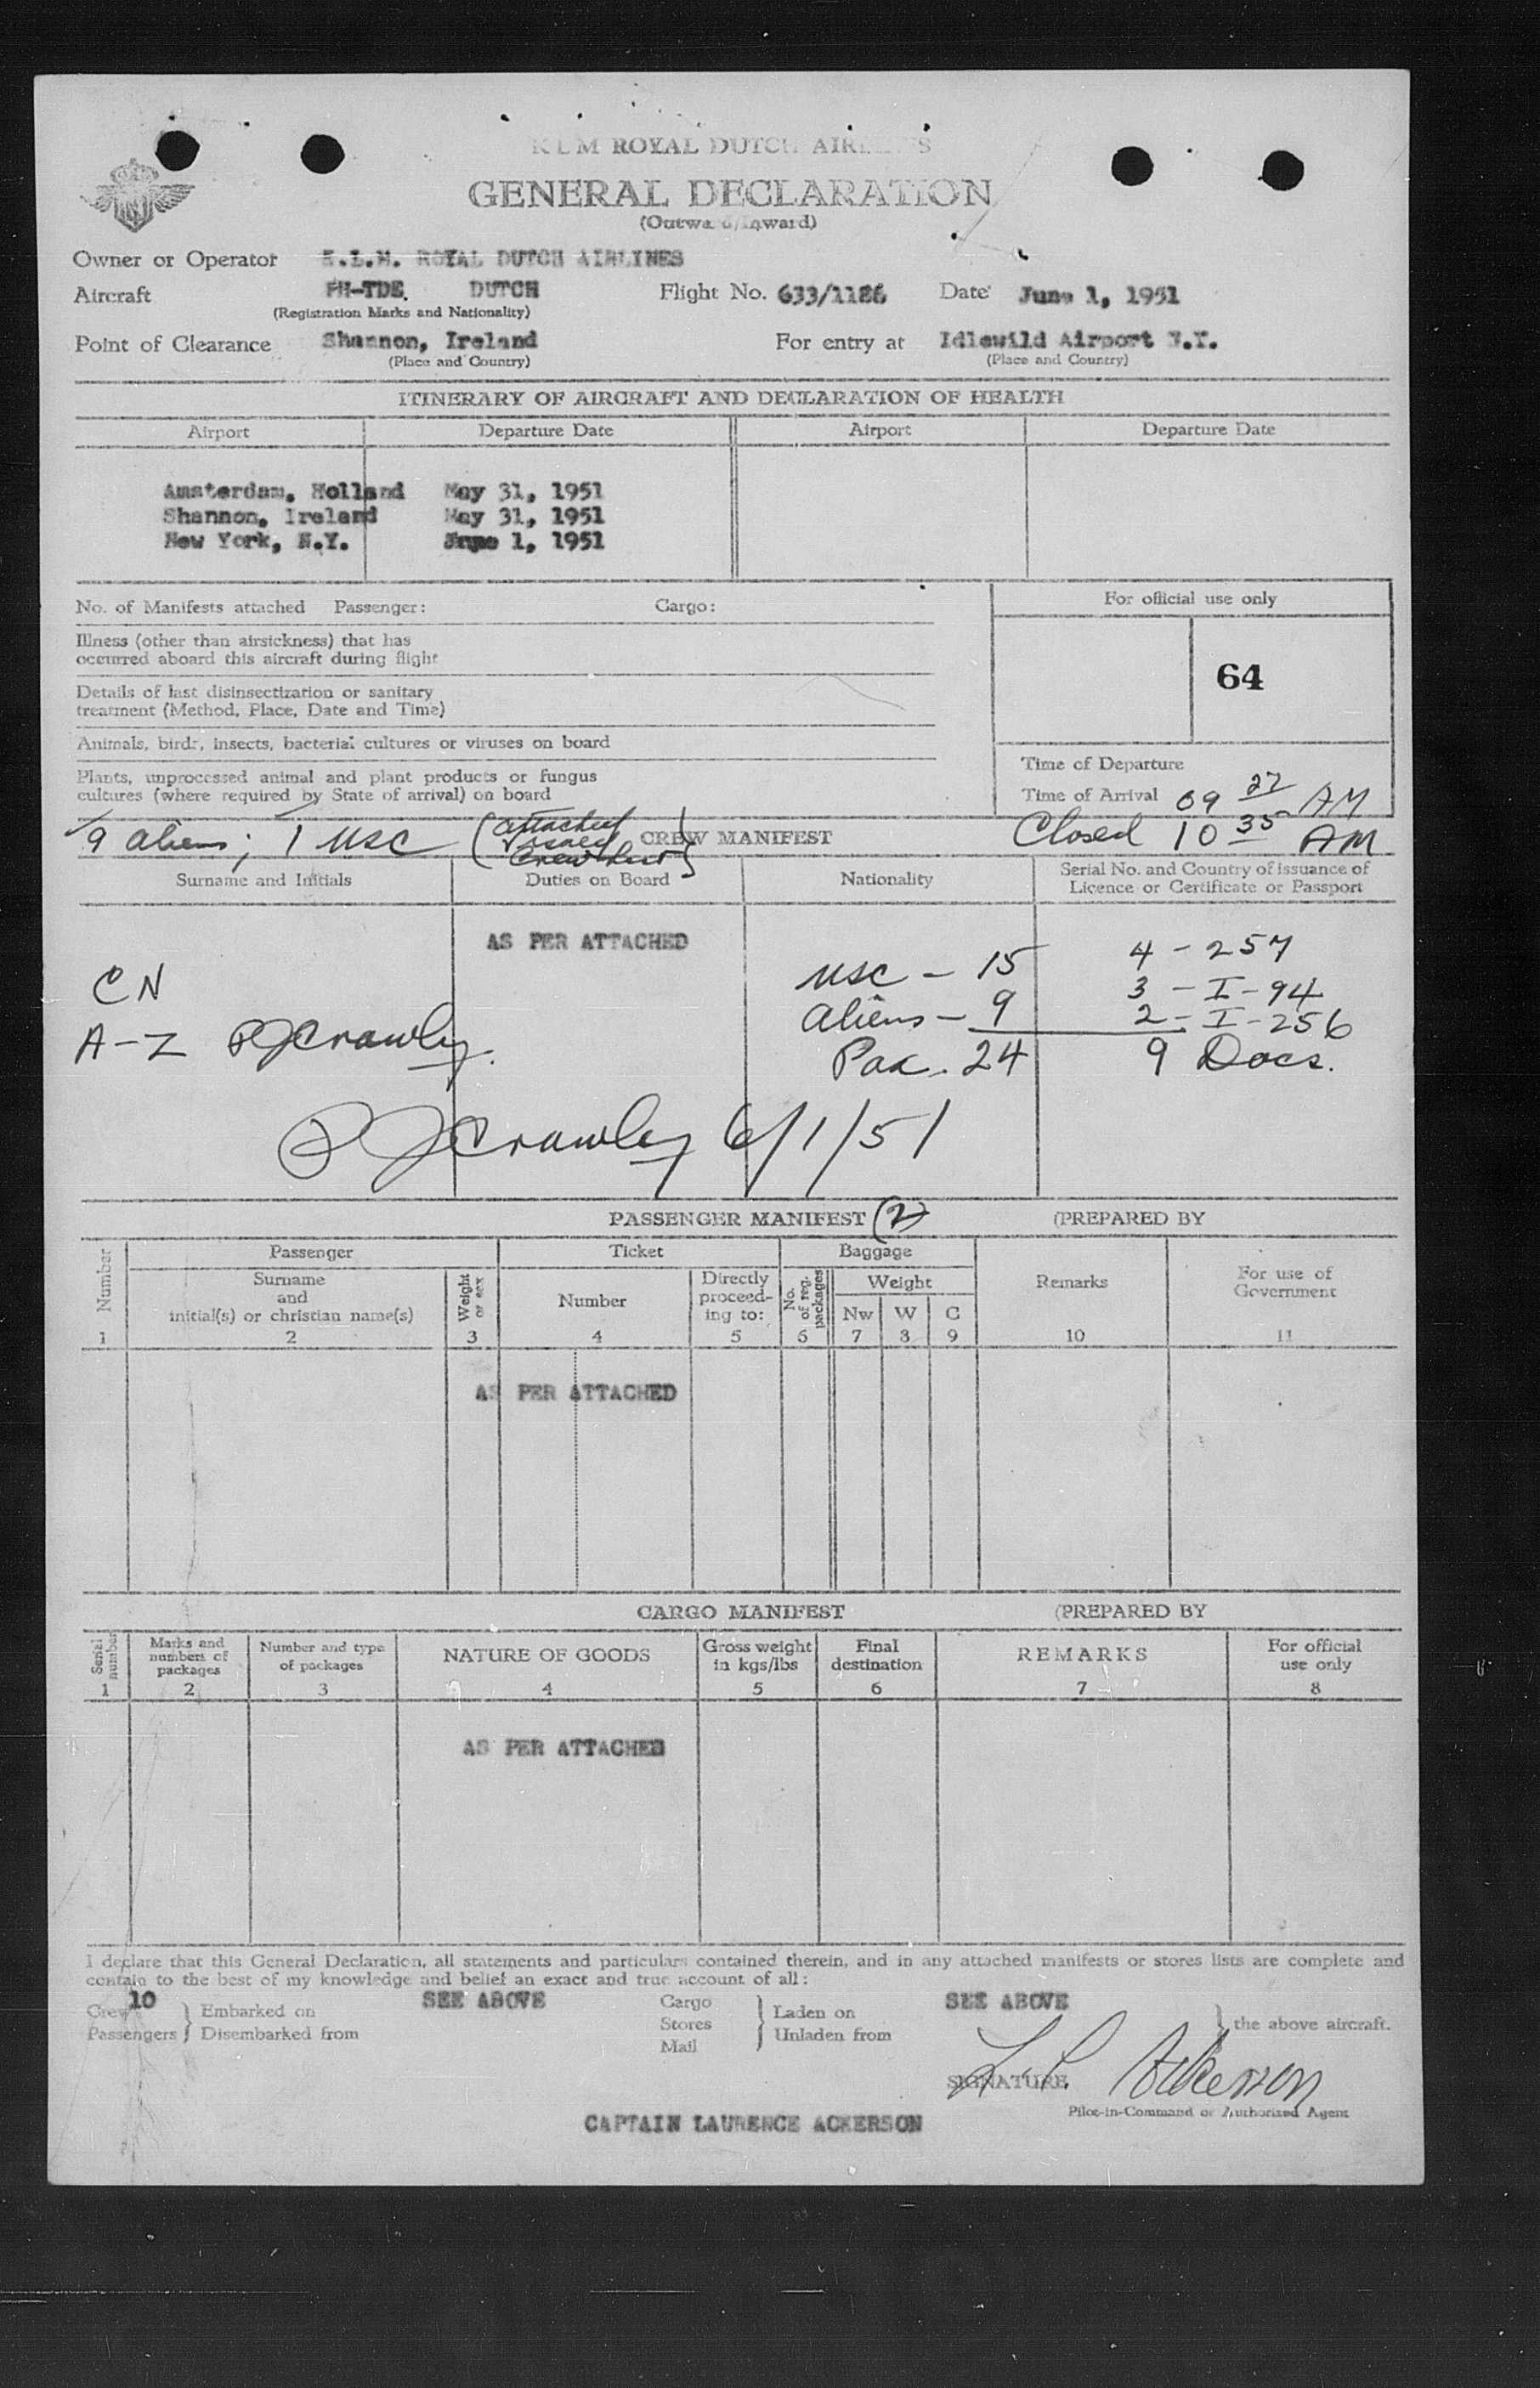 KLM ROYAL DUTCH AIRLINES
GENERAL DECLARATION
(Outward/Inward)
Owner or Operator K.L.M. ROYAL DUTCH AIRLINES
Aircraft PH-TDE. DUTCH Flight No. 633/1186 Date June 1, 1951
(Registration Marks and Nationality)
Point of Clearance Shannon, Ireland For entry at Idlewild Airport N.Y.
(Place and Country) (Place and Country)
ITINERARY OF AIRCRAFT AND DECLARATION OF HEALTH
Airport Departure Date Airport Departure Date
Amsterdam, Holland May 31, 1951
Shannon, Ireland May 31, 1951
New York, N.Y. June 1, 1951
No. of Manifests attached Passenger: Cargo: For official use only
Illness (other than airsickness) that has
occurred aboard this aircraft during flight
64
Details of last disinsectization or sanitary
treatment (Method, Place, Date and Time)
Animals, birds, insects, bacterial cultures or viruses on board
Time of Departure
Plants, unprocessed animal and plant products or fungus
cultures (where required by State of arrival) on board
Time of Arrival 09 27 AM
9 aliens; 1 USC (attached visaed Crew List) CREW MANIFEST Closed 10 35 AM
Surname and Initials Duties on Board Nationality Serial No. and Country of issuance of
Licence or Certificate or Passport
AS PER ATTACHED
CN USC - 15 4 - 257
aliens - 9 3 - I - 94
A-Z PJCrawley. 2 - I - 256
Pax. 24 9 Docs.
PJCrawley 6/1/51
PASSENGER MANIFEST (2) (PREPARED BY
Number Passenger Ticket Baggage Remarks For use of Government
Surname
and
initial(s) or christian name(s)
Weight or sex Number Directly proceed-ing to: No. of reg. packages Weight
Nw W C
1 2 3 4 5 6 7 8 9 10 11
AS PER ATTACHED
CARGO MANIFEST (PREPARED BY
Serial number Marks and numbers of packages Number and type of packages NATURE OF GOODS Gross weight in kgs/lbs Final destination REMARKS For official use only
1 2 3 4 5 6 7 8
AS PER ATTACHED
I declare that this General Declaration, all statements and particulars contained therein, and in any attached manifests or stores lists are complete and
contain to the best of my knowledge and belief an exact and true account of all:
Crew 10 Embarked on SEE ABOVE Cargo Laden on SEE ABOVE
Passengers Disembarked from Stores Unladen from the above aircraft.
Mail
SIGNATURE L. Ackerson
Pilot-in-Command or Authorized Agent
CAPTAIN LAURENCE ACKERSON